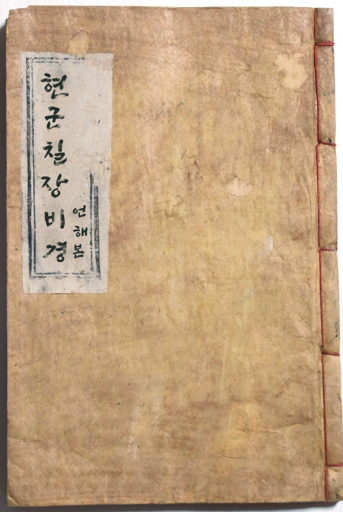 현군칠장비경
언해본